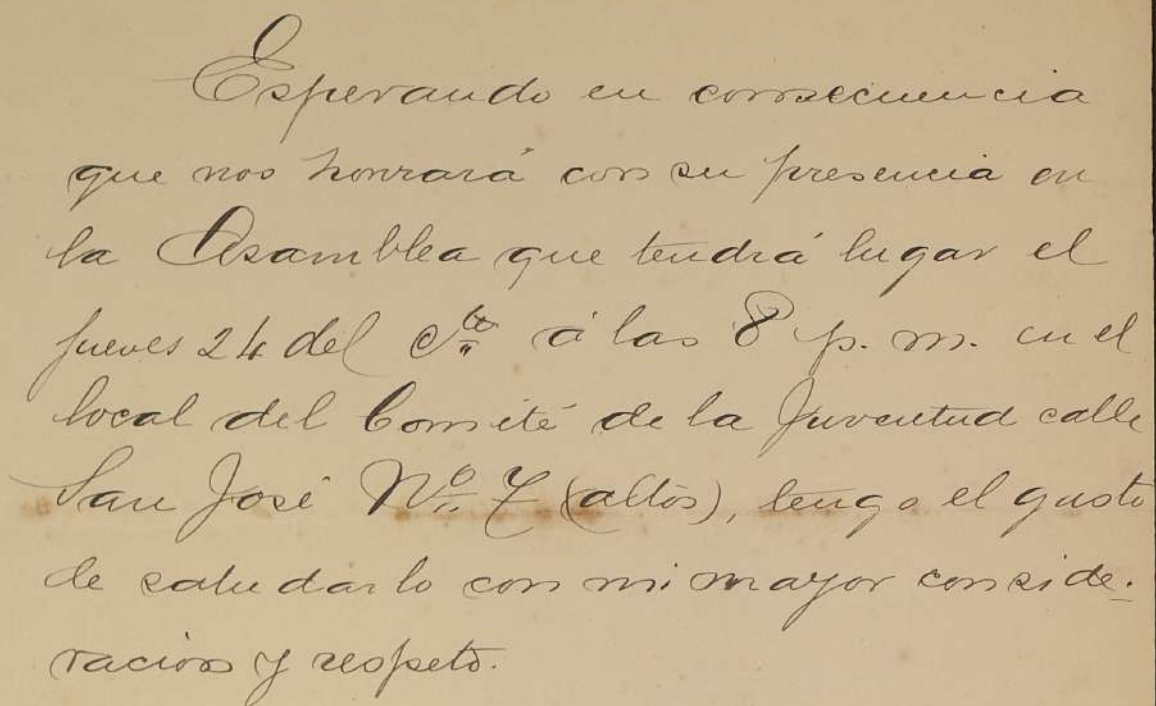 Esperando en consecuencia
que nos honrará con su presencia en
la Asamblea que tendrá lugar el
jueves 24 del cte á las 8 p. m. en el
local del Comité de la Juventud calle
San José Nº 7 (altos), tengo el gusto
de saludarlo con mi mayor conside-
ración y respeto.